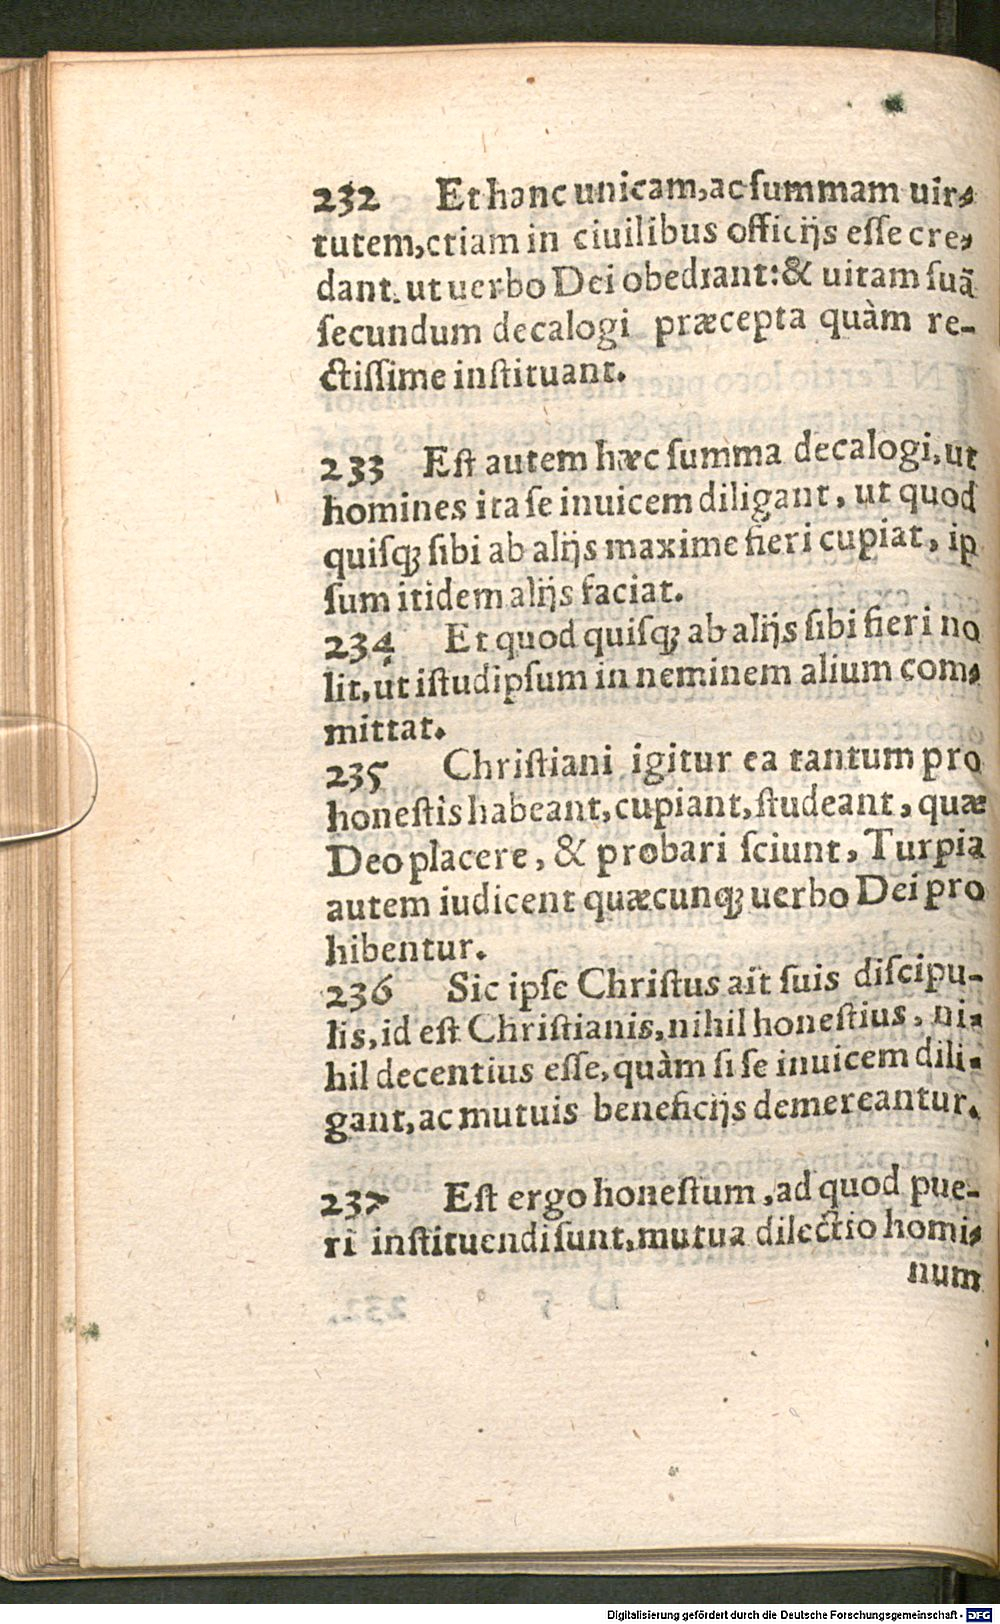 232 Et hanc unicam, ac ſummam uir-
tutem, etiam in ciuilibus officijs eſſe cre-
dant. ut uerbo Dei obediant: & uitam ſuã
ſecundum decalogi præcepta quàm re-
ctiſſime inſtituant.
233 Eſt autem hæc ſumma decalogi, ut
homines ita ſe inuicem diligant, ut quod
quiſq; ſibi ab alijs maxime fieri cupiat, ip
ſum itidem alijs faciat.
234 Et quod quiſq; ab alijs ſibi fieri no
lit, ut iſtud ipſum in neminem alium com-
mittat.
235 Chriſtiani igitur ea tantum pro
honeſtis habeant, cupiant, ſtudeant, quæ
Deo placere, & probari ſciunt, Turpia
autem iudicent quæcunq; uerbo Dei pro
hibentur.
236 Sic ipſe Chriſtus ait ſuis diſcipu-
lis, id eſt Chriſtianis, nihil honeſtius, ni-
hil decentius eſſe, quàm ſi ſe inuicem dili-
gant, ac mutuis beneficijs demereantur.
237 Eſt ergo honeſtum, ad quod pue-
ri inſtituendi ſunt, mutua dilectio homi-
num
Digitalisierung gefördert durch die Deutsche Forschungsgemeinschaft - DFG